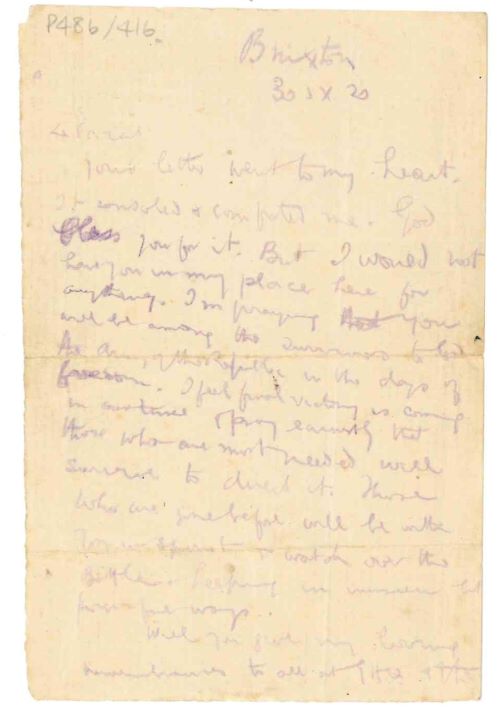 P486/416.
Brixton
30 IX 20
Your letter went to my heart.
It consoled & comforted me. God
bless you for it. But I would not
have you in my place here for
anything. I'm praying that you
will be among the survivors to lead
the army of the Republic in the days of
freedom. I feel final victory is coming
in our time & pray earnestly that
those who are most needed will
survive to direct it. Those
who are gone before will be with
you in spirit to watch over the
battle & helping in unseen but
ways.
Will you give my loving
remembrances to all at